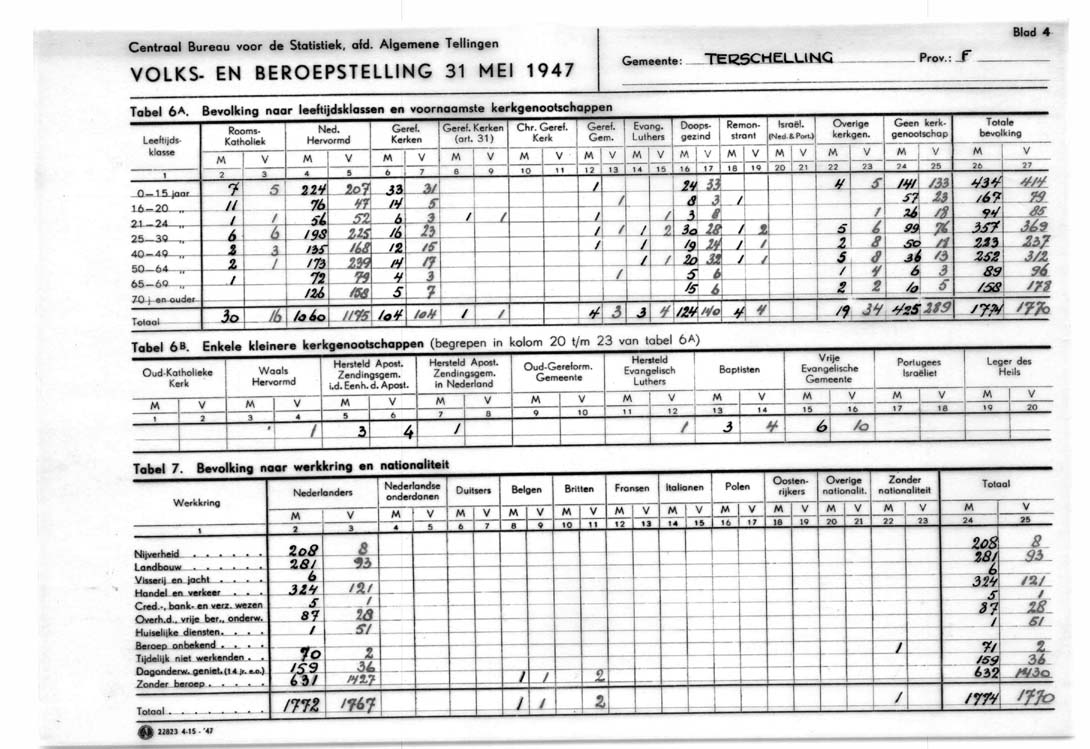 Blad 4
Centraal Bureau voor de Statistiek, afd. Algemene Tellingen
VOLKS- EN BEROEPSTELLING 31 MEI 1947
Gemeente: TERSCHELLING Prov.: F
Tabel 6A. Bevolking naar leeftijdsklassen en voornaamste kerkgenootschappen
Leeftijds-klasse Rooms-Katholiek Ned. Hervormd Geref. Kerken Geref. Kerken (art. 31) Chr. Geref. Kerk Geref. Gem. Evang. Luthers Doops-gezind Remon-strant Israël. (Ned. & Port.) Overige kerkgen. Geen kerk-genootschap Totale bevolking
M V M V M V M V M V M V M V M V M V M V M V M V M V
1 2 3 4 5 6 7 8 9 10 11 12 13 14 15 16 17 18 19 20 21 22 23 24 25 26 27
0—15 jaar 7 5 224 207 33 31 1 24 33 4 5 141 133 434 414
16—20 „ 11 76 47 14 5 1 8 3 1 57 23 167 79
21—24 „ 1 1 56 52 6 3 1 1 1 1 3 8 1 26 18 94 85
25—39 „ 6 6 198 225 16 23 1 1 1 2 30 28 1 2 5 6 99 76 357 369
40—49 „ 2 3 135 168 12 15 1 1 19 24 1 1 2 8 50 18 223 237
50—64 „ 2 1 173 239 14 17 1 1 20 32 1 1 5 8 36 13 252 312
65—69 „ 1 72 79 4 3 1 5 6 1 4 6 3 89 96
70 j en ouder 126 158 5 7 15 6 2 2 10 5 158 178
Totaal 30 16 1060 1175 104 104 1 1 4 3 3 4 124 140 4 4 19 34 425 289 1774 1770
Tabel 6B. Enkele kleinere kerkgenootschappen (begrepen in kolom 20 t/m 23 van tabel 6A)
Oud-Katholieke Kerk Waals Hervormd Hersteld Apost. Zendingsgem. i.d. Eenh. d. Apost. Hersteld Apost. Zendingsgem. in Nederland Oud-Gereform. Gemeente Hersteld Evangelisch Luthers Baptisten Vrije Evangelische Gemeente Portugees Israëliet Leger des Heils
M V M V M V M V M V M V M V M V M V M V
1 2 3 4 5 6 7 8 9 10 11 12 13 14 15 16 17 18 19 20
1 3 4 1 1 3 4 6 10
Tabel 7. Bevolking naar werkkring en nationaliteit
Werkkring Nederlanders Nederlandse onderdanen Duitsers Belgen Britten Fransen Italianen Polen Oosten-rijkers Overige nationalit. Zonder nationaliteit Totaal
M V M V M V M V M V M V M V M V M V M V M V M V
1 2 3 4 5 6 7 8 9 10 11 12 13 14 15 16 17 18 19 20 21 22 23 24 25
Nijverheid . . . . . . 208 8 208 8
Landbouw . . . . . . 281 93 281 93
Visserij en jacht . . . . 6 6
Handel en verkeer . . . 324 121 324 121
Cred.-, bank- en verz. wezen 5 1 5 1
Overh.d., vrije ber., onderw. 87 28 87 28
Huiselijke diensten. . . . 1 51 1 51
Beroep onbekend . . . .
Tijdelijk niet werkenden . . 70 2 1 71 2
Dagonderw. geniet. (14 jr. e.o.) 159 36 159 36
Zonder beroep . . . . . 631 1427 1 1 2 632 1430
Totaal . . . . . . . . 1772 1767 1 1 2 1 1774 1770
22823 4-15 - '47